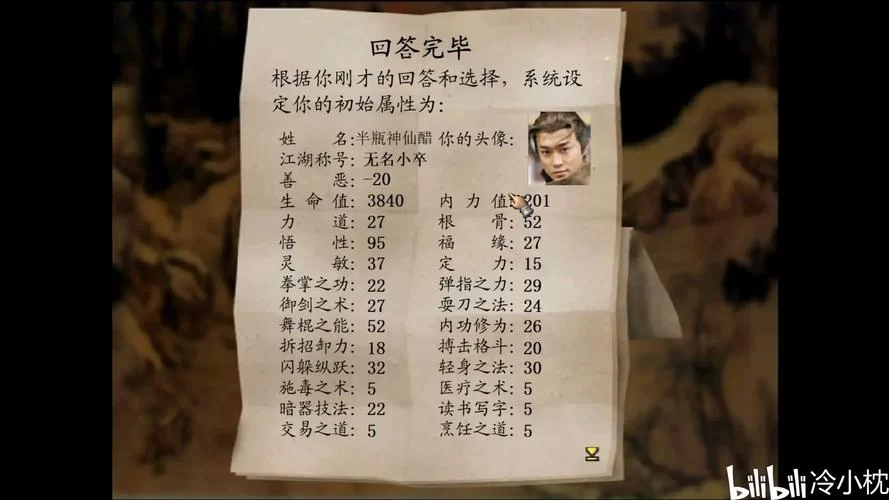 回答完毕
根据你刚才的回答和选择，系统设
定你的初始属性为：
姓 名：半瓶神仙醋 你的头像：
江湖称号：无名小卒
善 恶：-20
生命值：3840 内力值：201
力 道：27 根 骨：52
悟 性：95 福 缘：27
灵 敏：37 定 力：15
拳掌之功：22 弹指之力：29
御剑之术：27 耍刀之法：24
舞棍之能：52 内功修为：26
拆招卸力：18 搏击格斗：20
闪躲纵跃：32 轻身之法：30
施毒之术：5 医疗之术：5
暗器技法：22 读书写字：5
交易之道：5 烹饪之道：5
bilibili 冷小枕